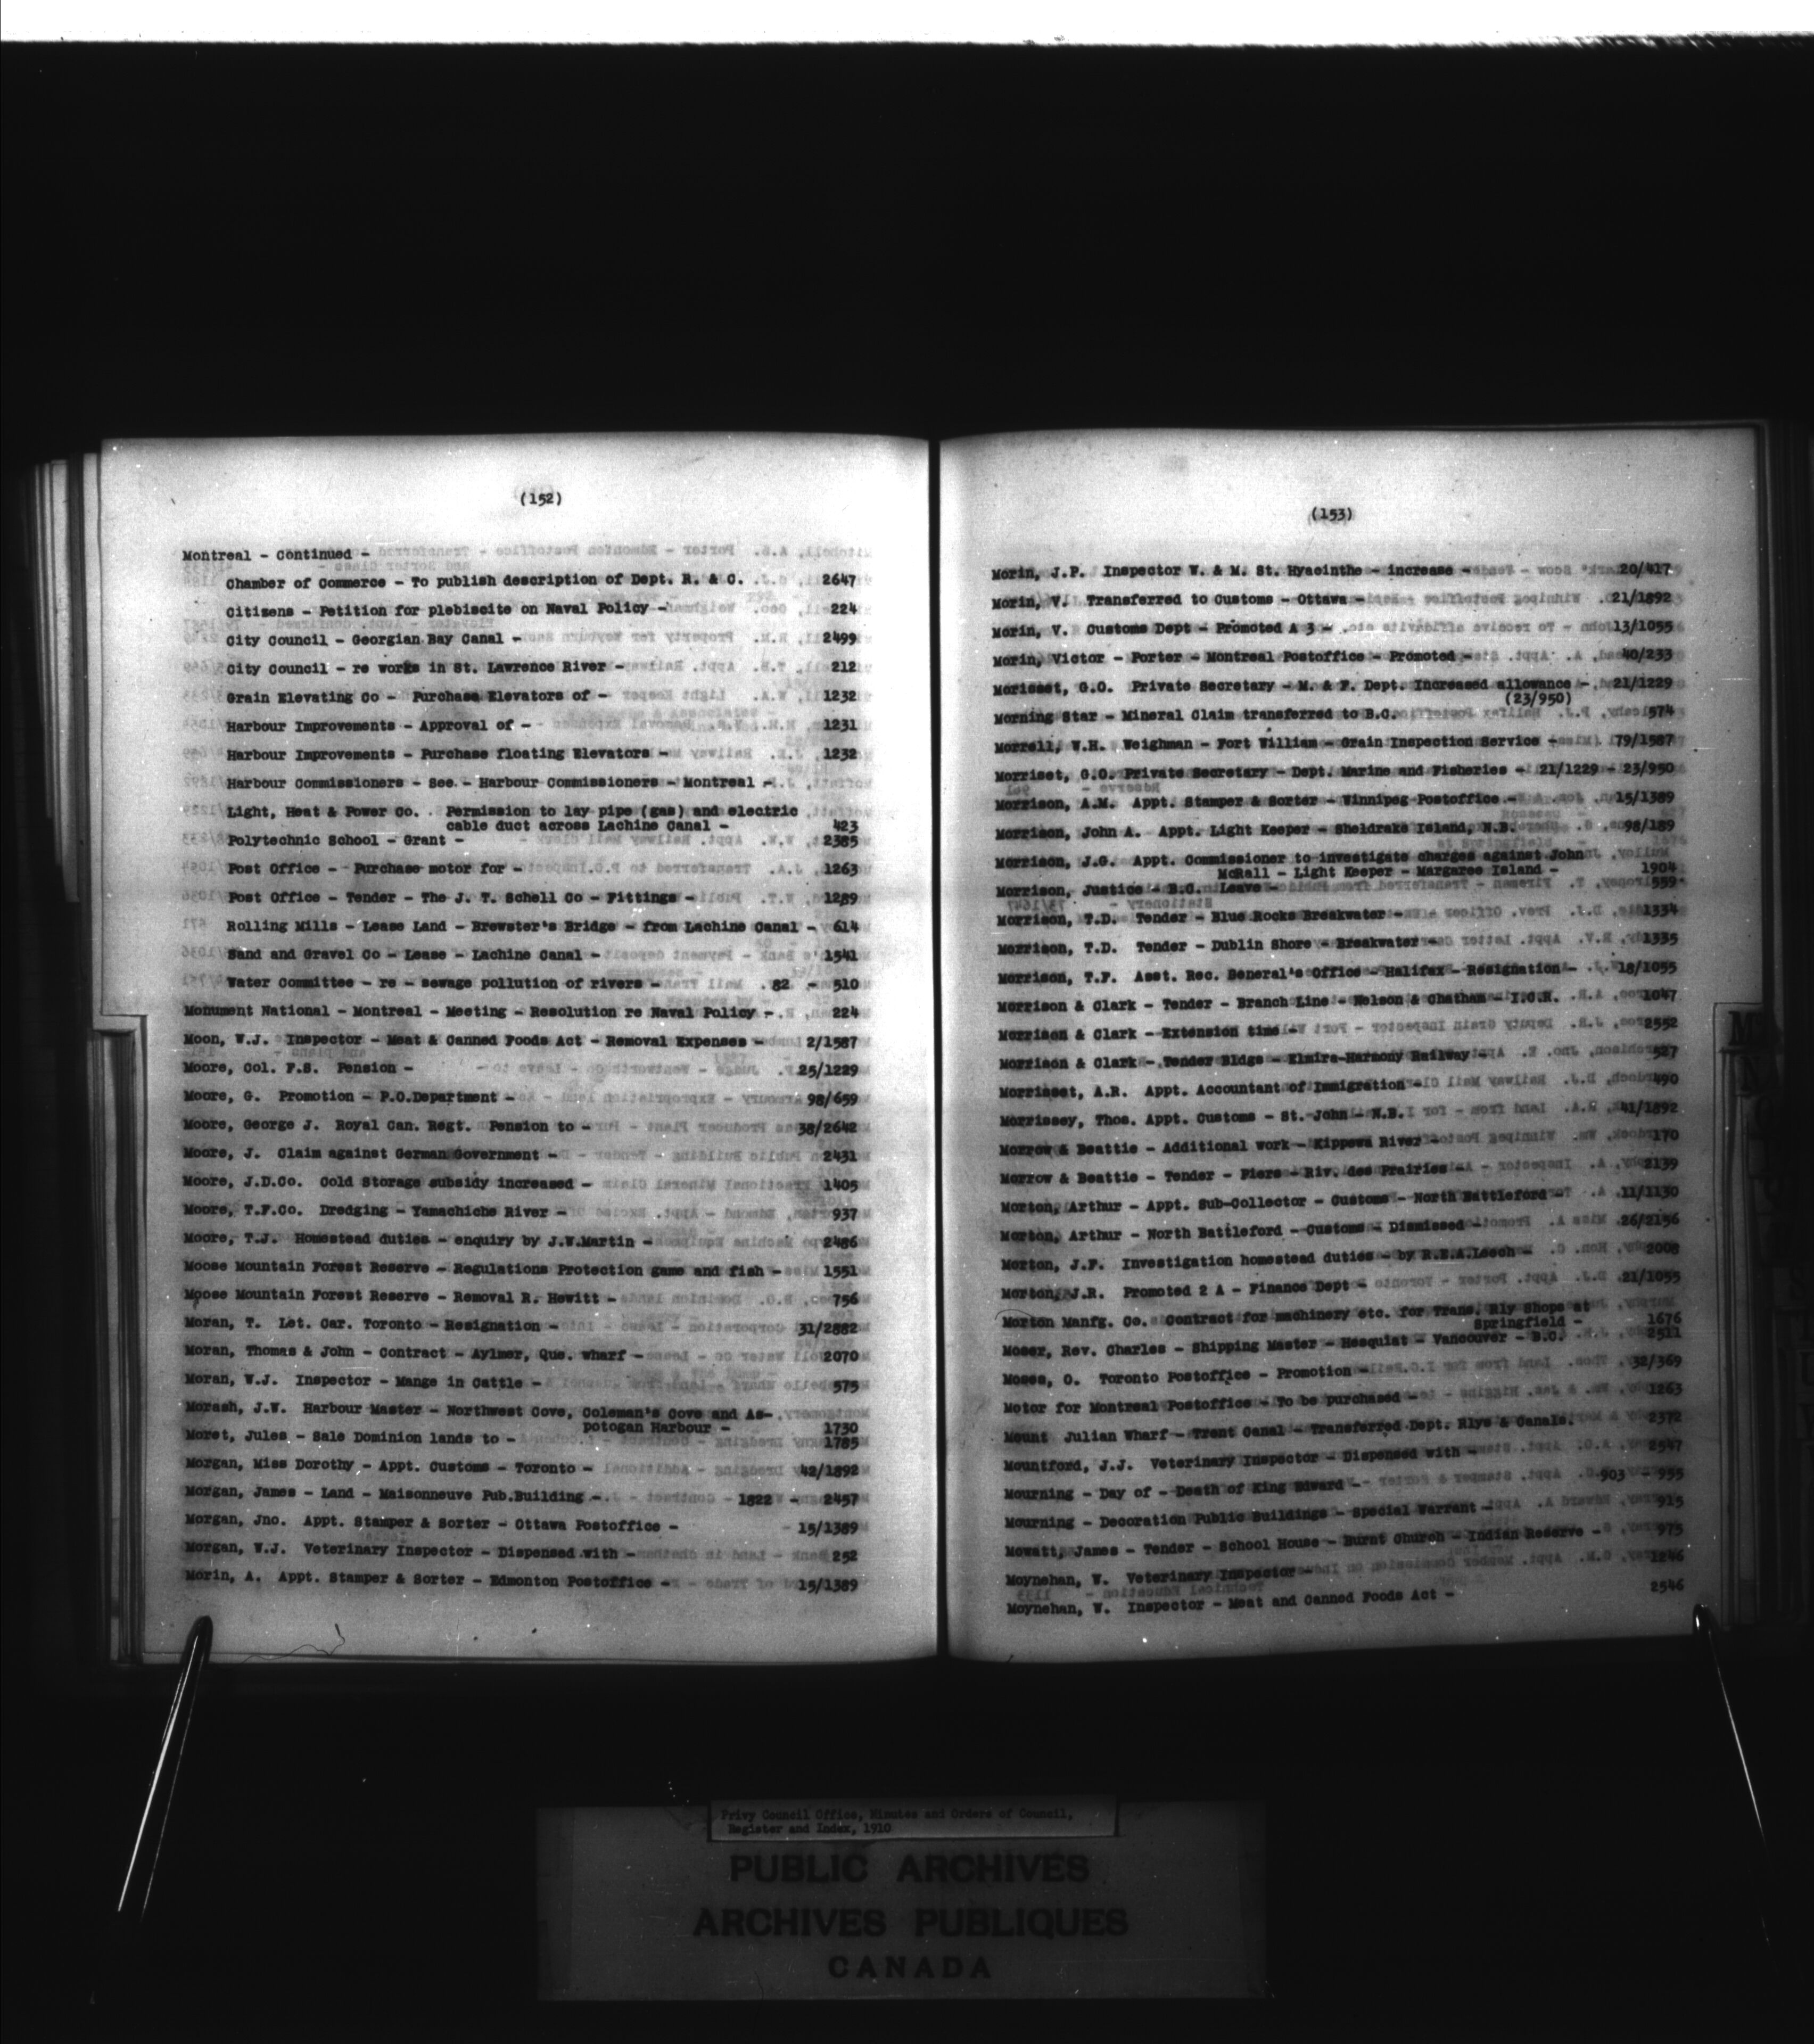 (152)
Montreal - Continued -
Chamber of Commerce - To publish description of Dept. R. & C. 2647
Citizens - Petition for plebiscite on Naval Policy - 224
City Council - Georgian Bay Canal - 2499
City Council - re works in St. Lawrence River - 212
Grain Elevating Co - Purchase Elevators of - 1232
Harbour Improvements - Approval of - 1231
Harbour Improvements - Purchase floating Elevators - 1232
Harbour Commissioners - See - Harbour Commissioners - Montreal -
Light, Heat & Power Co. Permission to lay pipe (gas) and electric
cable duct across Lachine Canal - 423
Polytechnic School - Grant - 2385
Post Office - Purchase motor for - 1263
Post Office - Tender - The J. T. Schell Co - Fittings - 1289
Rolling Mills - Lease Land - Brewster's Bridge - from Lachine Canal - 614
Sand and Gravel Co - Lease - Lachine Canal - 1541
Water Committee - re - sewage pollution of rivers - 82 - 510
Monument National - Montreal - Meeting - Resolution re Naval Policy - 224
Moon, W.J. Inspector - Meat & Canned Foods Act - Removal Expenses - 2/1587
Moore, Col. F.S. Pension - 25/1229
Moore, G. Promotion - P.O.Department - 98/659
Moore, George J. Royal Can. Regt. Pension to - 38/2642
Moore, J. Claim against German Government - 2431
Moore, J.D.Co. Cold Storage subsidy increased - 1405
Moore, T.F.Co. Dredging - Yamachiche River - 937
Moore, T.J. Homestead duties - enquiry by J.W.Martin - 2486
Moose Mountain Forest Reserve - Regulations Protection game and fish - 1551
Moose Mountain Forest Reserve - Removal R. Hewitt - 756
Moran, T. Let. Car. Toronto - Resignation - 31/2882
Moran, Thomas & John - Contract - Aylmer, Que. wharf - 2070
Moran, W.J. Inspector - Mange in Cattle - 575
Morash, J.W. Harbour Master - Northwest Cove, Coleman's Cove and As-
potogan Harbour - 1730
Moret, Jules - Sale Dominion lands to - 1785
Morgan, Miss Dorothy - Appt. Customs - Toronto - 42/1892
Morgan, James - Land - Maisonneuve Pub.Building - 1822 - 2457
Morgan, Jno. Appt. Stamper & Sorter - Ottawa Postoffice - 15/1389
Morgan, W.J. Veterinary Inspector - Dispensed with - 252
Morin, A. Appt. Stamper & Sorter - Edmonton Postoffice - 15/1389
(153)
Morin, J.P. Inspector W. & M. St. Hyacinthe - increase - 20/417
Morin, V. Transferred to Customs - Ottawa - 21/1892
Morin, V. Customs Dept - Promoted A 3 - 13/1055
Morin, Victor - Porter - Montreal Postoffice - Promoted - 40/233
Morisset, G.O. Private Secretary - M. & F. Dept. Increased allowance - 21/1229
(23/950)
Morning Star - Mineral Claim transferred to B.C. 574
Morrell, W.H. Weighman - Fort William - Grain Inspection Service - 79/1587
Morriset, G.O. Private Secretary - Dept. Marine and Fisheries - 21/1229 - 23/950
Morrison, A.M. Appt. Stamper & Sorter - Winnipeg Postoffice - 15/1389
Morrison, John A. Appt. Light Keeper - Sheldrake Island, N.B. 98/189
Morrison, J.G. Appt. Commissioner to investigate charges against John
McRall - Light Keeper - Margaree Island - 1904
Morrison, Justice - B.C. Leave - 559
Morrison, T.D. Tender - Blue Rocks Breakwater - 1334
Morrison, T.D. Tender - Dublin Shore - Breakwater - 1335
Morrison, T.F. Asst. Rec. General's Office - Halifax - Resignation - 18/1055
Morrison & Clark - Tender - Branch Line - Nelson & Chatham - I.C.R. 1047
Morrison & Clark - Extension time - 2552
Morrison & Clark - Tender Bldge - Elmira-Harmony Railway - 527
Morrisset, A.R. Appt. Accountant of Immigration - 490
Morrissey, Thos. Appt. Customs - St. John - N.B. 41/1892
Morrow & Beattie - Additional work - Kippewa River - 170
Morrow & Beattie - Tender - Piers - Riv. des Prairies - 2139
Morton, Arthur - Appt. Sub-Collector - Customs - North Battleford - 11/1130
Morton, Arthur - North Battleford - Customs - Dismissed - 26/2156
Morton, J.F. Investigation homestead duties - by R.E.A.Leech - 2008
Morton, J.R. Promoted 2 A - Finance Dept - 21/1055
Morton Manfg. Co. Contract for machinery etc. for Trans. Rly Shops at
Springfield - 1676
Moser, Rev. Charles - Shipping Master - Hesquiat - Vancouver - B.C. 2511
Moses, O. Toronto Postoffice - Promotion - 32/369
Motor for Montreal Postoffice - To be purchased - 1263
Mount Julian Wharf - Trent Canal - Transferred Dept. Rlys & Canals. 2372
Mountford, J.J. Veterinary Inspector - Dispensed with - 2547
Mourning - Day of - Death of King Edward - 903 - 955
Mourning - Decoration Public Buildings - Special Warrant - 915
Mowatt, James - Tender - School House - Burnt Church - Indian Reserve - 975
Moynehan, W. Veterinary Inspector - 1246
Moynehan, W. Inspector - Meat and Canned Foods Act - 2546
Privy Council Office, Minutes and Orders of Council,
Register and Index, 1910
PUBLIC ARCHIVES
ARCHIVES PUBLIQUES
CANADA